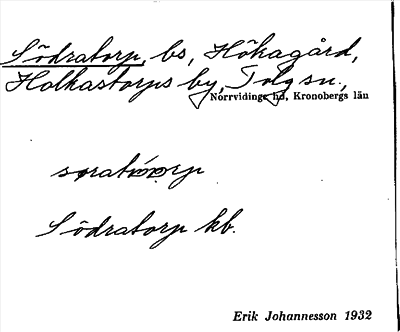 Södratorp, bs, Hökagård,
Holkastorps by, Tolg sn.,
Norrvidinge hd, Kronobergs län
Södratorp kb.
Erik Johannesson 1932